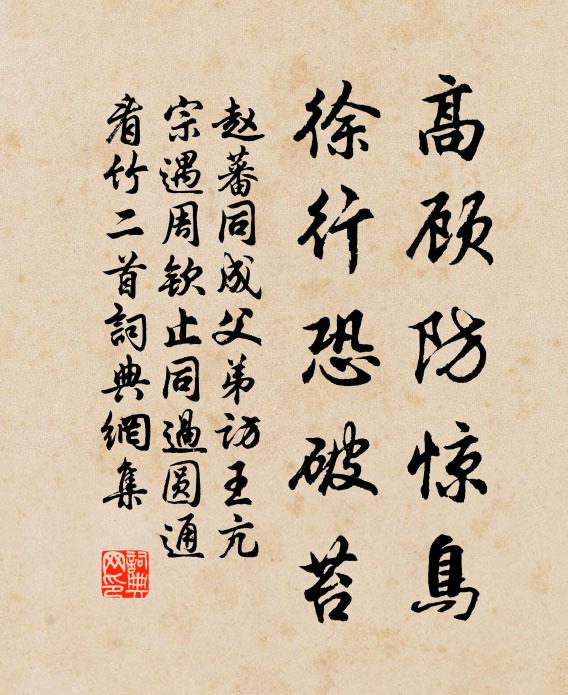 髙顾防惊鳥
徐行恐破苔
赵蕃同成父弟访王亢
宗遇周钦止同過圆通
看竹二首詞典網集
詞典网印